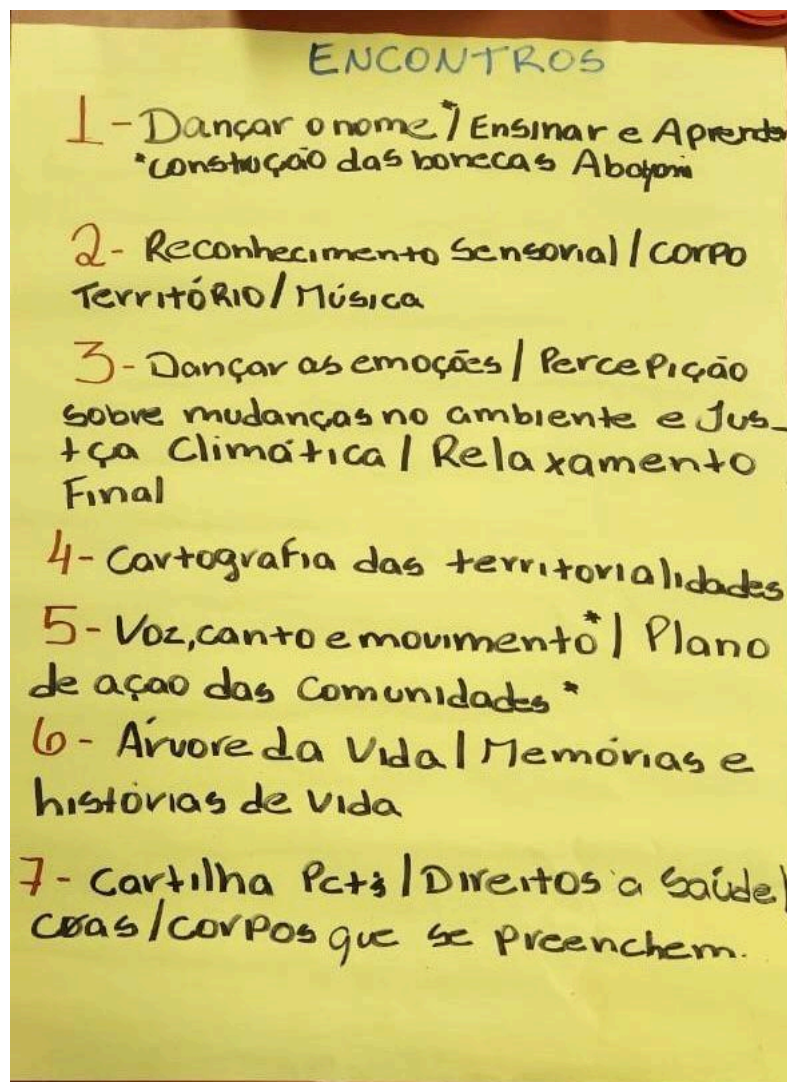 ENCONTROS
1 - Dançar o nome* / Ensinar e Aprender
*constução das bonecas Abayomi
2 - Reconhecimento Sensorial / corpo
Território / Música
3 - Dançar as emoções / Percepição
sobre mudanças no ambiente e Jus-
tça Climática / Relaxamento
Final
4 - Cartografia das territorialidades
5 - Voz, canto e movimento* / Plano
de açao das Comunidades *
6 - Árvore da Vida / Memórias e
histórias de vida
7 - Cartilha Pcts / Direitos a Saúde /
/ corpos que se preenchem.